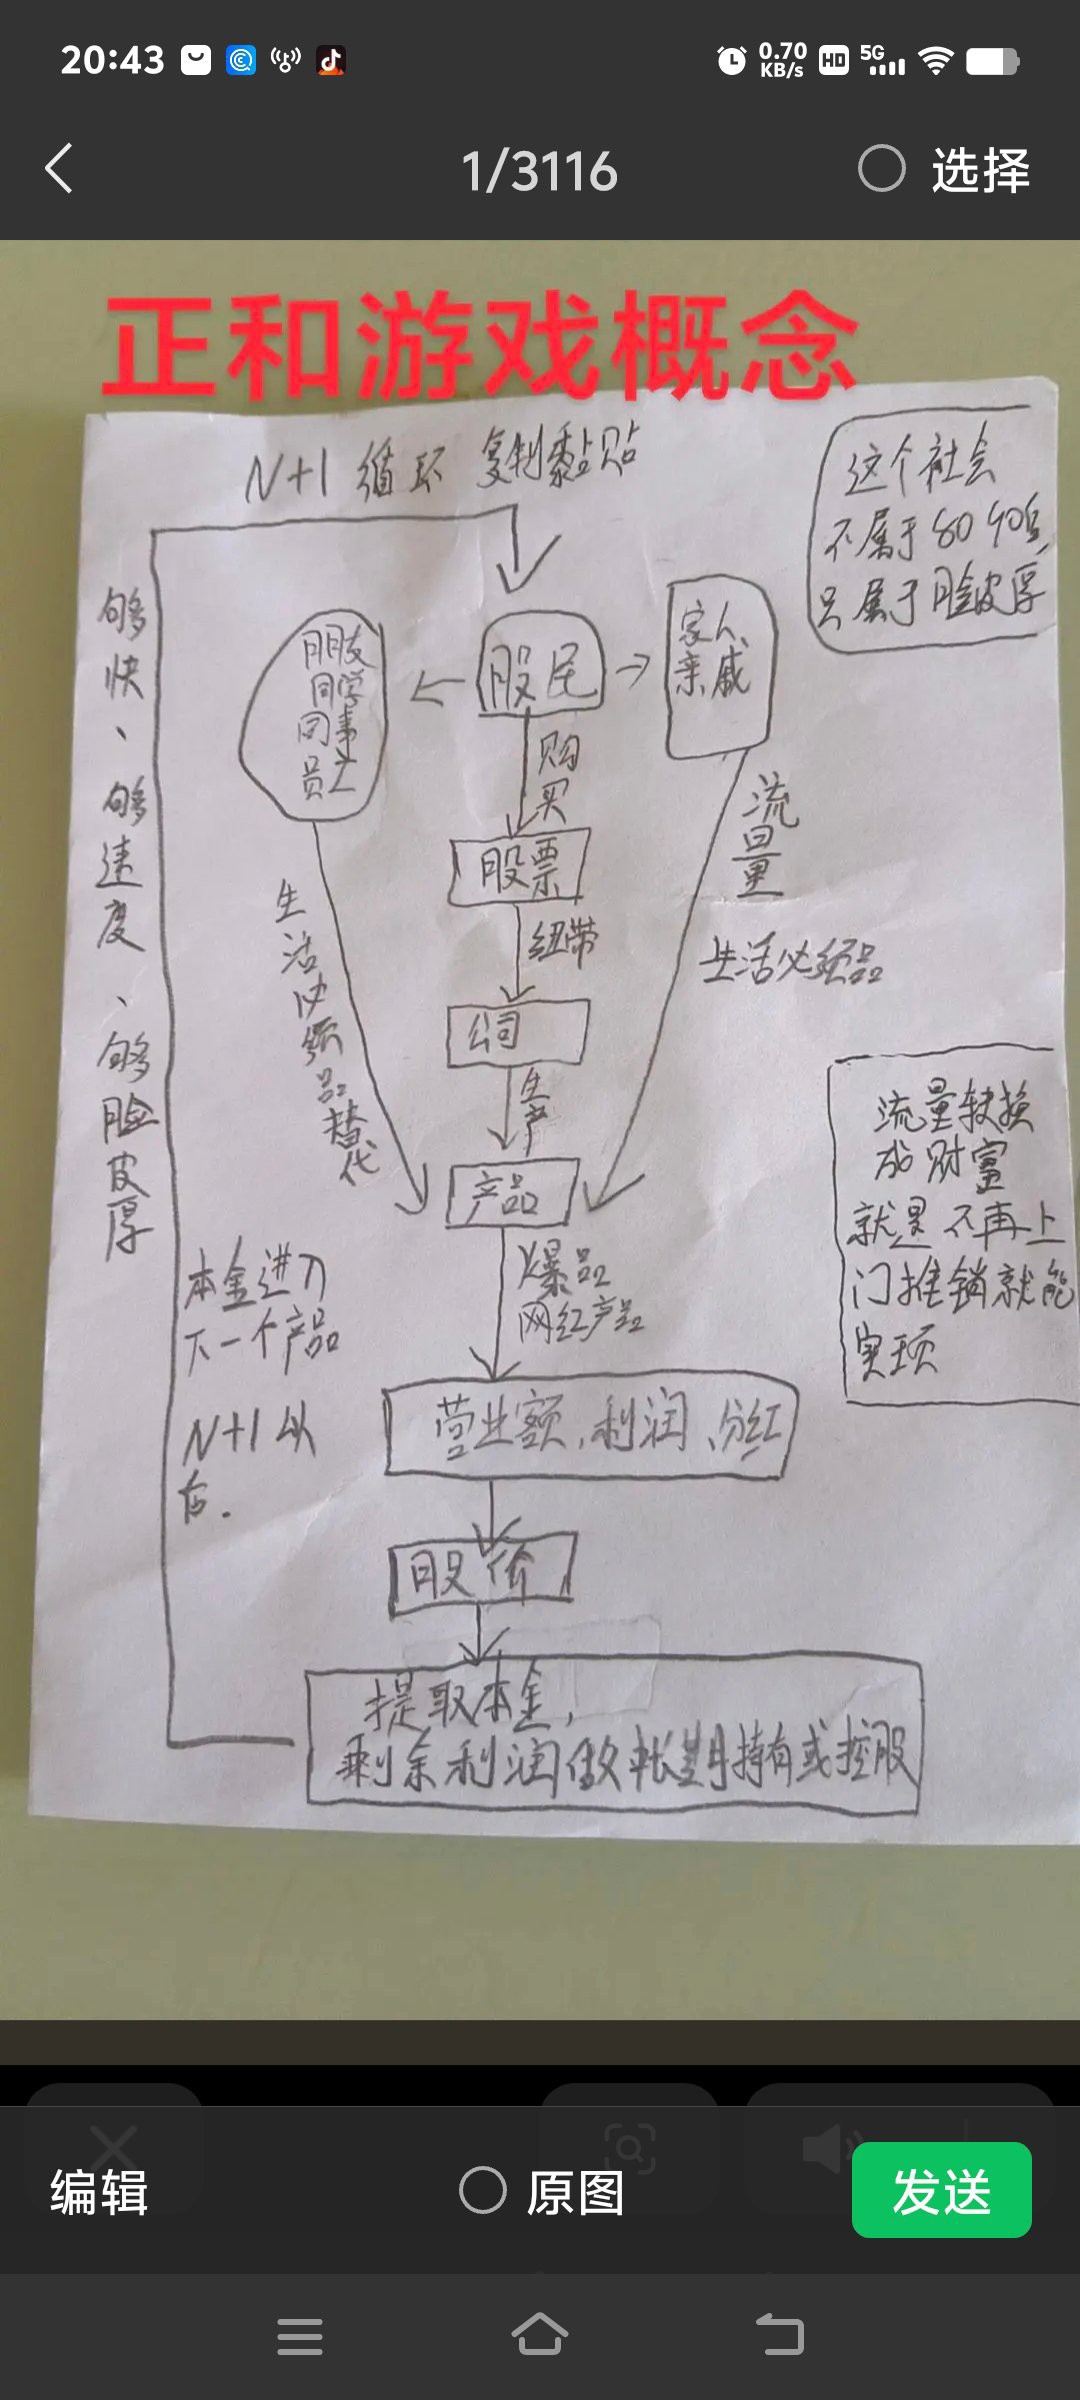 20:43
0.70
KB/s
HD
5G
1/3116
选择
正和游戏概念
N+1 循环 复制黏贴
这个社会
不属于80 90后
只属于脸皮厚
够快、够速度、够脸皮厚
朋友
同学
同事
员工
股民
家人
亲戚
购买
流量
股票
纽带
生活必须品替代
生活必须品
公司
生产
产品
流量转换
成财富
就是不再上
门推销就能
实现
本金进入
下一个产品
爆品
网红产品
N+1以
后.
营业额,利润、分红
股价
提取本金,
剩余利润做长期持有或控股
编辑
原图
发送